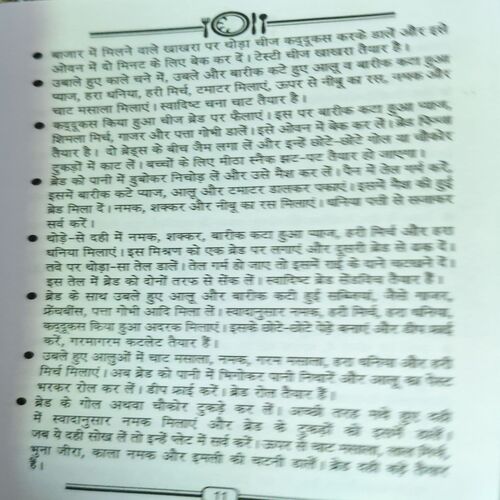 बाजार में मिलने वाले खाखरा पर थोड़ा चीज कद्दूकस करके डालें और इसे
ओवन में दो मिनट के लिए बेक कर दें। टेस्टी चीज खाखरा तैयार है।
उबाले हुए काले चने में, उबले और बारीक कटे हुए आलु व बारीक कटा हुआ
प्याज, हरा धनिया, हरी मिर्च, टमाटर मिलाएं, ऊपर से नीबू का रस, नमक और
चाट मसाला मिलाएं। स्वादिष्ट चना चाट तैयार है।
कद्दूकस किया हुआ चीज ब्रेड पर फैलाएं। इस पर बारीक कटा हुआ प्याज,
शिमला मिर्च, गाजर और पत्ता गोभी डालें। इसे ओवन में बेक कर लें। ब्रेड पिज्जा
तैयार है। दो ब्रेड्स के बीच जैम लगा लें और इन्हें छोटे-छोटे गोल या चौकोर
टुकड़ों में काट लें। बच्चों के लिए मीठा स्नैक झट-पट तैयार हो जाएगा।
ब्रेड को पानी में डुबोकर निचोड़ लें और उसे मैश कर लें। पैन में तेल गर्म करें,
इसमें बारीक कटे प्याज, आलू और टमाटर डालकर पकाएं। इसमें मैश की हुई
ब्रेड मिला दें। नमक, शक्कर और नीबू का रस मिलाएं। धनिया पत्ती से सजाकर
सर्व करें।
थोड़े-से दही में नमक, शक्कर, बारीक कटा हुआ प्याज, हरी मिर्च और हरा
धनिया मिलाएं। इस मिश्रण को एक ब्रेड पर लगाएं और दूसरी ब्रेड से ढक दें।
तवे पर थोड़ा-सा तेल डालें। तेल गर्म हो जाए तो इसमें राई के दाने चटखने दें।
इस तेल में ब्रेड को दोनों तरफ से सेंक लें। स्वादिष्ट ब्रेड सेंडविच तैयार है।
ब्रेड के साथ उबले हुए आलू और बारीक कटी हुई सब्जियां, जैसे गाजर,
फ्रेंचबींस, पत्ता गोभी आदि मिला लें। स्वादानुसार नमक, हरी मिर्च, हरा धनिया,
कद्दूकस किया हुआ अदरक मिलाएं। इसके छोटे-छोटे पेड़े बनाएं और डीप फ्राई
करें, गरमागरम कटलेट तैयार है।
उबले हुए आलुओं में चाट मसाला, नमक, गरम मसाला, हरा धनिया और हरी
मिर्च मिलाएं। अब ब्रेड को पानी में भिगोकर पानी निथारें और आलू का पेस्ट
भरकर रोल कर लें। डीप फ्राई करें। ब्रेड रोल तैयार है।
ब्रेड के गोल अथवा चौकोर टुकड़े कर लें। अच्छी तरह मथे हुए दही
में स्वादानुसार नमक मिलाएं और ब्रेड के टुकड़ों को इसमें डालें।
जब ये दही सोख लें तो इन्हें प्लेट में सर्व करें। ऊपर से चाट मसाला, लाल मिर्च,
भुना जीरा, काला नमक और इमली की चटनी डालें। ब्रेड दही बड़े तैयार
हैं।
11